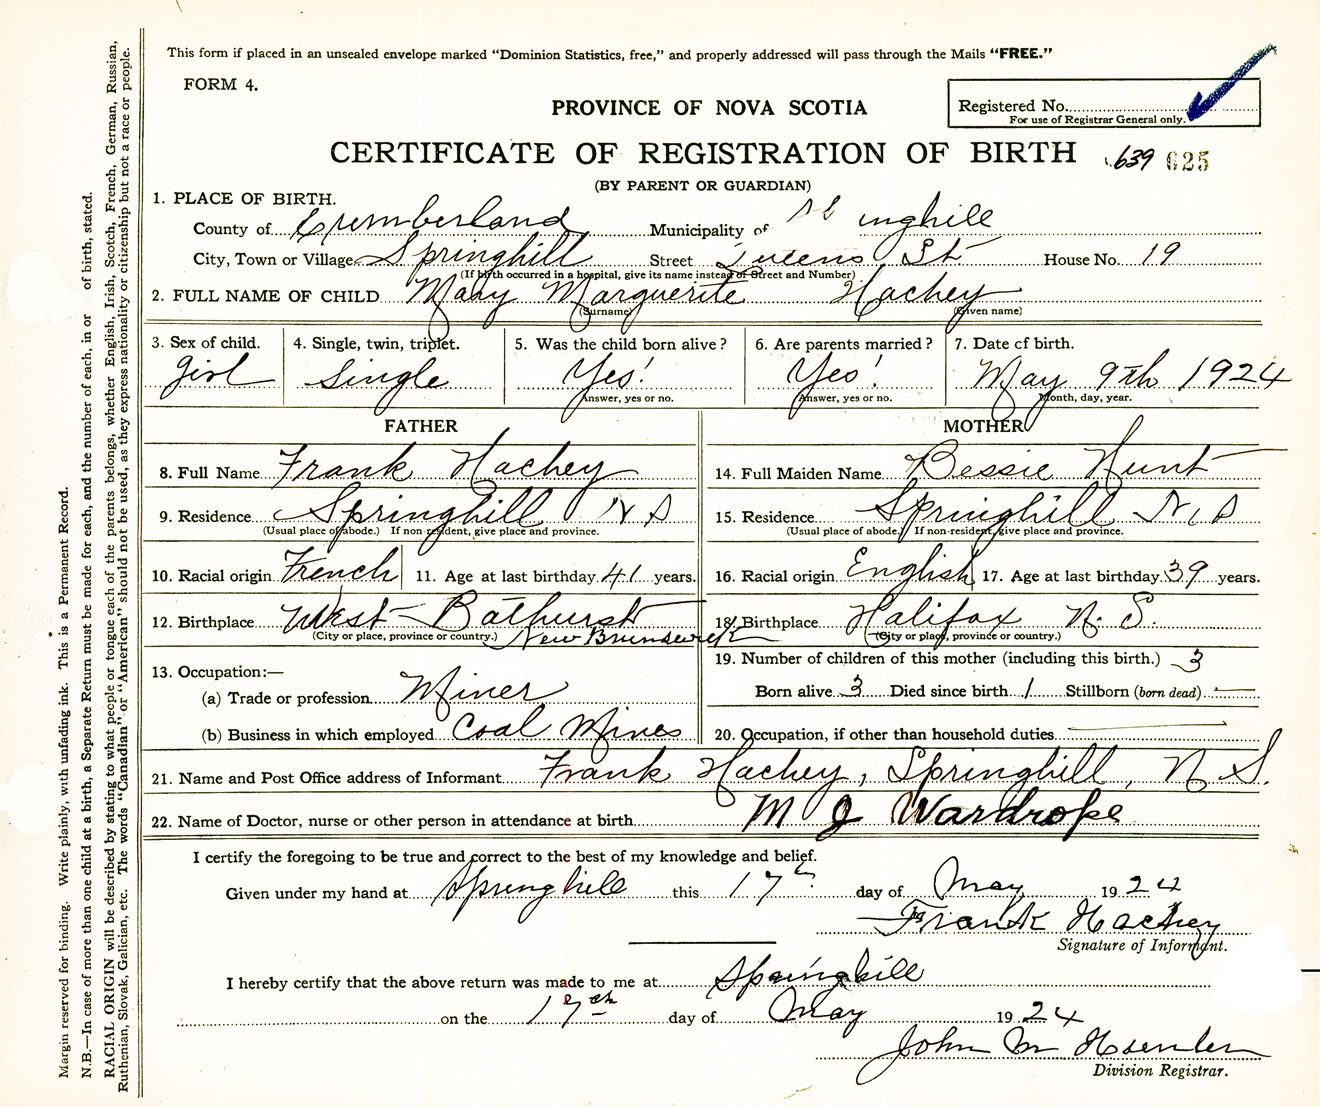 This form if placed in an unsealed envelope marked "Dominion Statistics, free," and properly addressed will pass through the Mails "FREE."
FORM 4.
PROVINCE OF NOVA SCOTIA
Registered No.
For use of Registrar General only.
CERTIFICATE OF REGISTRATION OF BIRTH 639 625
(BY PARENT OR GUARDIAN)
1. PLACE OF BIRTH.
County of Cumberland Municipality of inghill
City, Town or Village Springhill Street Queens St House No. 19
(If birth occurred in a hospital, give its name instead of Street and Number)
2. FULL NAME OF CHILD Mary Marguerite Hachey
(Surname) (Given name)
3. Sex of child. 4. Single, twin, triplet. 5. Was the child born alive? 6. Are parents married? 7. Date of birth.
girl Single Yes! Yes! May 9th 1924
Answer, yes or no. Answer, yes or no. Month, day, year.
FATHER MOTHER
8. Full Name Frank Hachey 14. Full Maiden Name Bessie Hunt
9. Residence Springhill N S 15. Residence Springhill N S
(Usual place of abode.) If non-resident, give place and province. (Usual place of abode.) If non-resident, give place and province.
10. Racial origin French 11. Age at last birthday 41 years. 16. Racial origin English 17. Age at last birthday 39 years.
12. Birthplace West Bathurst 18. Birthplace Halifax N. S.
(City or place, province or country.) New Brunswick (City or place, province or country.)
13. Occupation:— 19. Number of children of this mother (including this birth.) 3
(a) Trade or profession Miner Born alive 3 Died since birth 1 Stillborn (born dead) —
(b) Business in which employed Coal Mines 20. Occupation, if other than household duties
21. Name and Post Office address of Informant Frank Hachey, Springhill, N S.
22. Name of Doctor, nurse or other person in attendance at birth M J Wardrope
I certify the foregoing to be true and correct to the best of my knowledge and belief.
Given under my hand at Springhill this 17th day of May 1924
Frank Hachey
Signature of Informant.
I hereby certify that the above return was made to me at Springhill
on the 17th day of May 1924
John M
Division Registrar.
Margin reserved for binding. Write plainly, with unfading ink. This is a Permanent Record.
N.B.—In case of more than one child at a birth, a Separate Return must be made for each, and the number of each, in or of birth, stated.
RACIAL ORIGIN will be described by stating to what people or tongue each of the parents belongs, whether English, Irish, Scotch, French, German, Russian,
Ruthenian, Slovak, Galician, etc. The words "Canadian" or "American" should not be used, as they express nationality or citizenship but not a race or people.